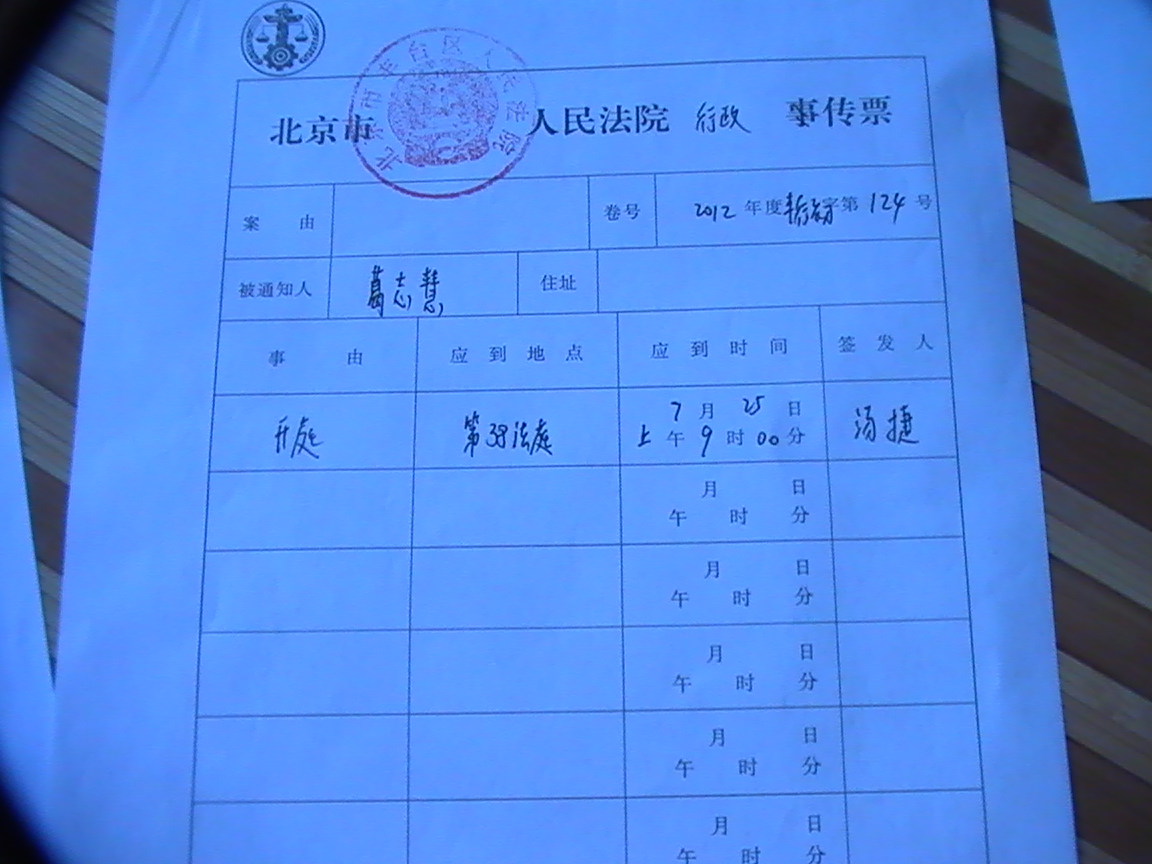 北京市丰台区人民法院
北京市 人民法院 行政 事传票
案 由 卷号 2012 年度 字第 124 号
被通知人 葛志慧 住址
事 由 应到地点 应到时间 签发人
开庭 第38法庭 7月25日 上午9时00分 汤捷
月 日
午 时 分
月 日
午 时 分
月 日
午 时 分
月 日
午 时 分
月 日
午 时 分